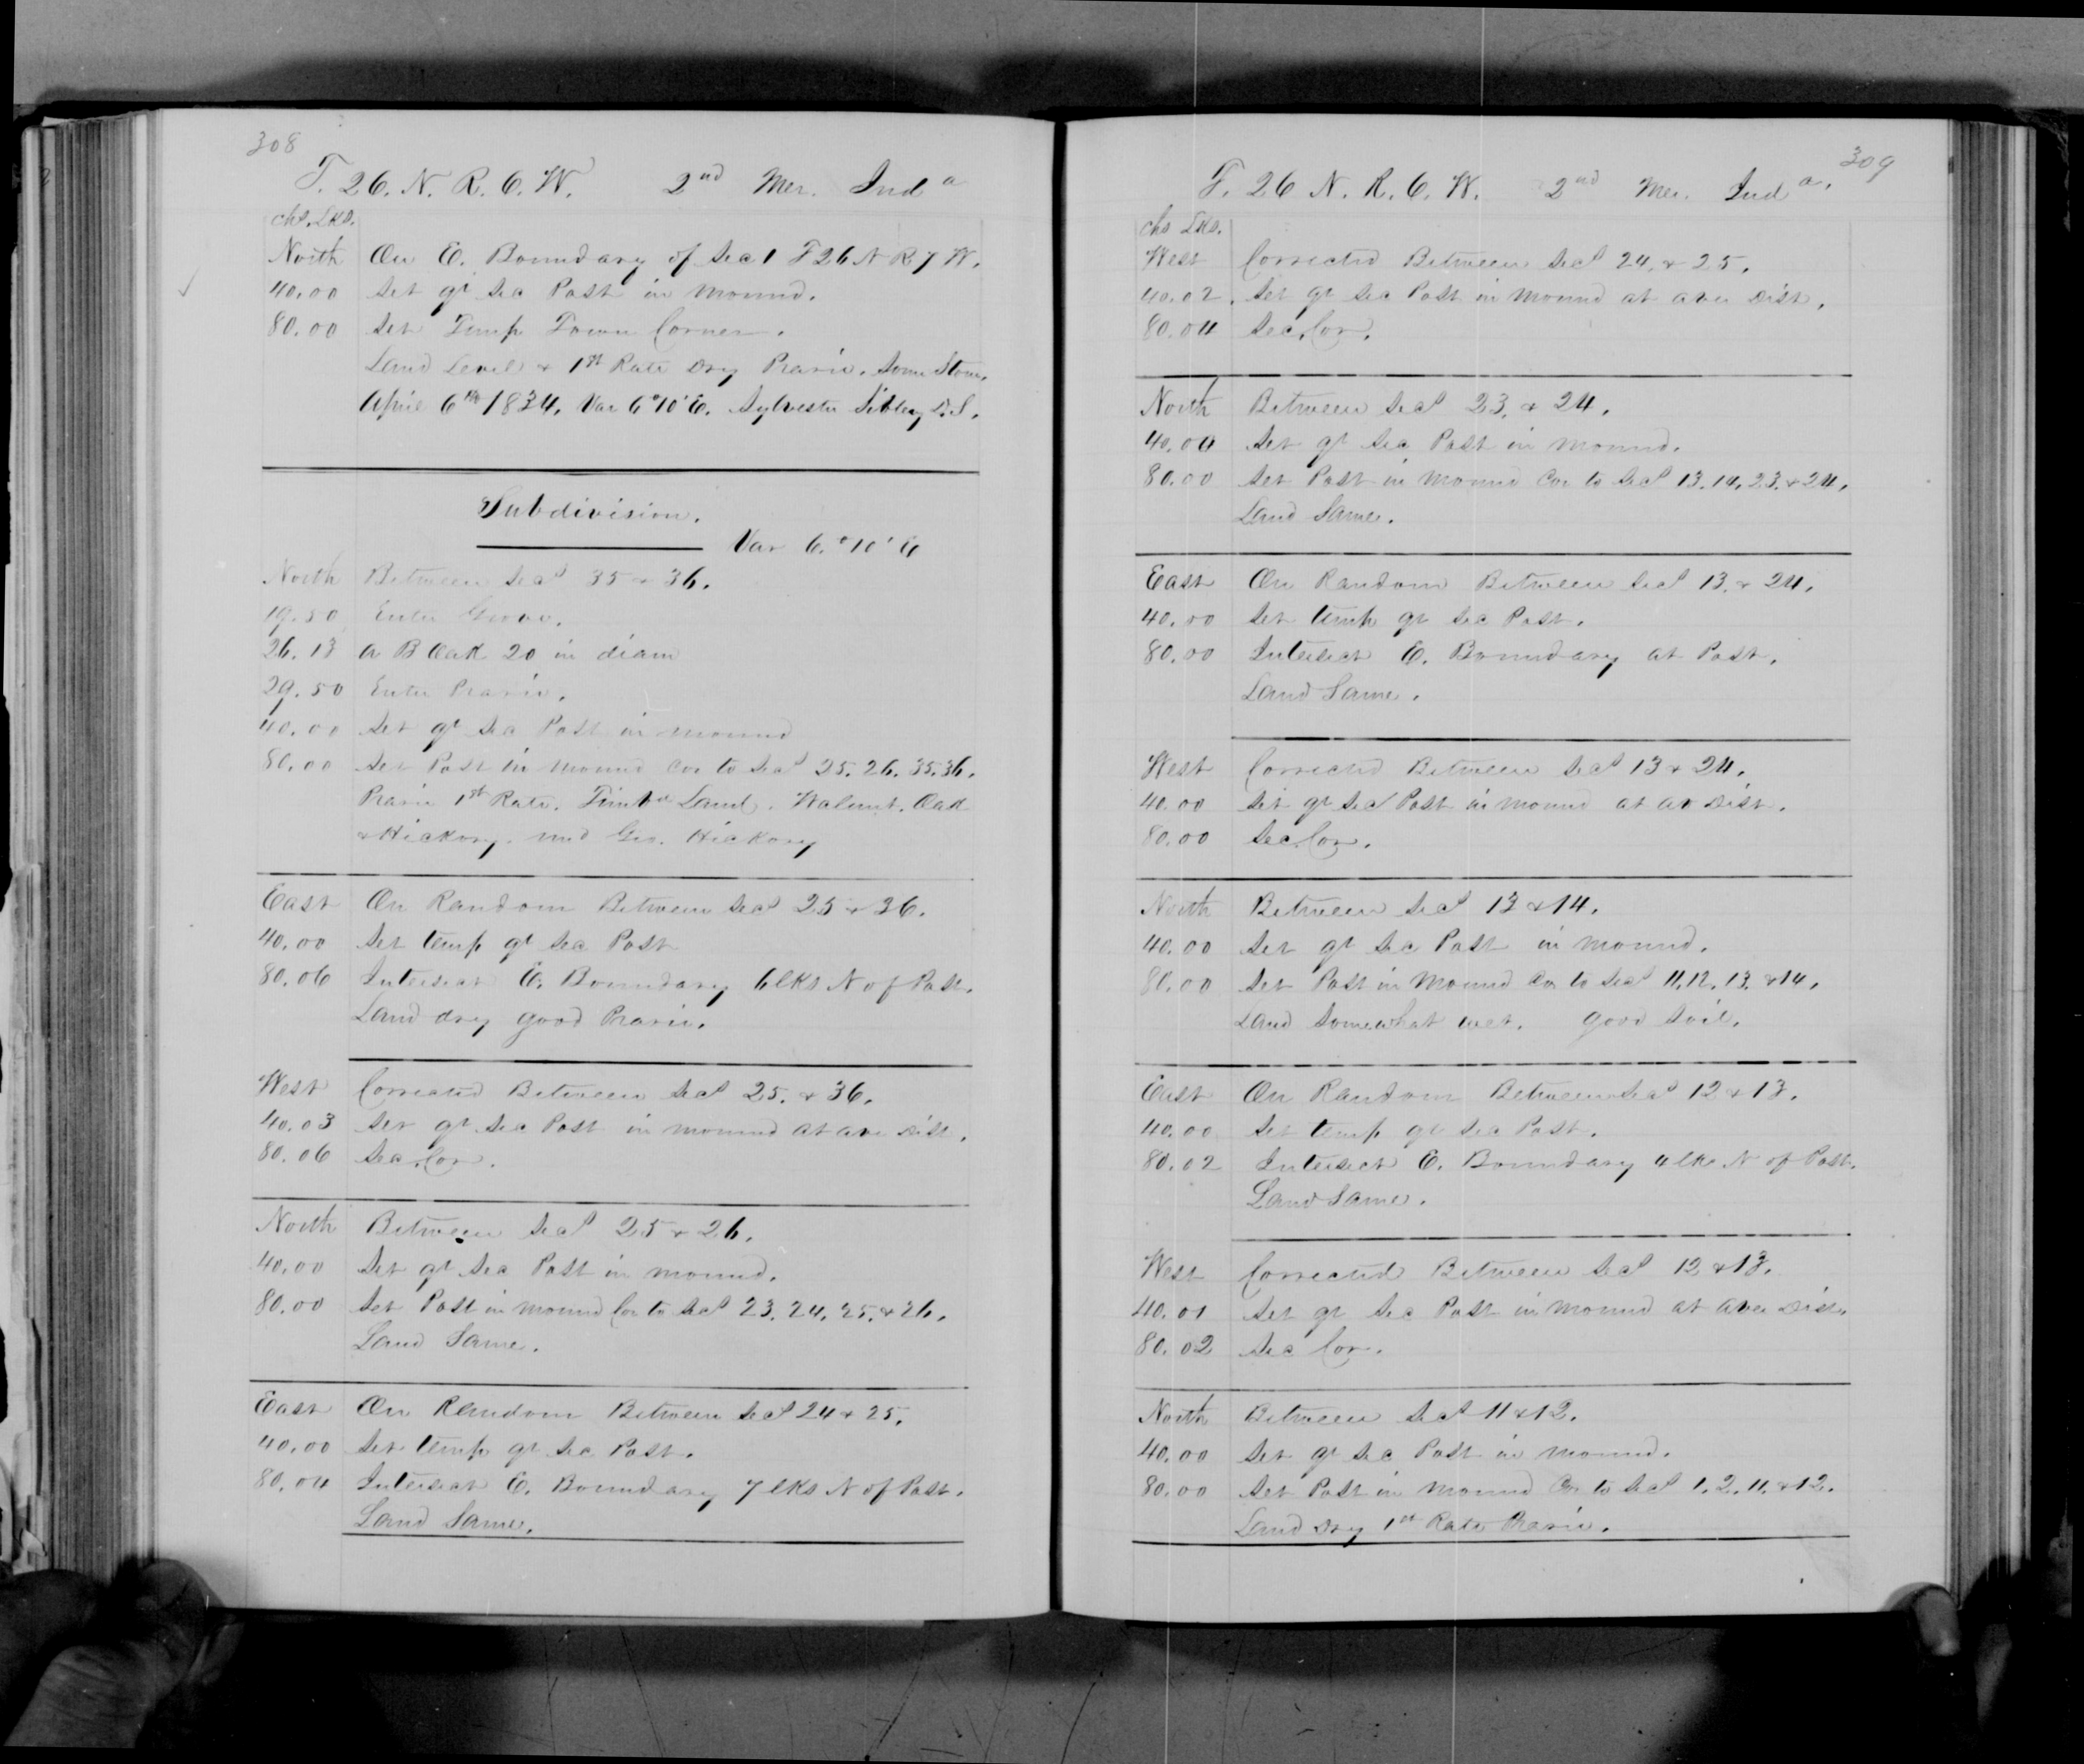 308
T. 26. N. R. 6. W. 2nd Mer. Inda
chs. Lks.
North On E. Boundary of Sec 1 T 26 N R 7 W.
40.00 Set qr Sec Post in Mound.
80.00 Set Temp Town Corner.
Land Level & 1st Rate Dry Prarie. Some Stone.
April 6th 1834. Var 6°10' E. Sylvester Sibley D.S.
Subdivision.
Var 6.°10' E
North Between Secs 35 & 36.
19.50 Enter Grove.
26.13 A B Oak 20 in diam
29.50 Enter Prarie.
40.00 Set qr Sec Post in mound
80.00 Set Post in Mound Cor to Secs 25. 26. 35. 36.
Prarie 1st Rate. Timbr Land. Walnut. Oak
& Hickory. und Gro. Hickory
East On Random Between Secs 25 & 36.
40.00 Set temp qr Sec Post
80.06 Intersect E. Boundary 6 lks N of Post.
Land dry good Prarie.
West Corrected Between Secs 25. & 36.
40.03 Set qr Sec Post in mound at ave Dist.
80.06 Sec. Cor.
North Between Secs 25 & 26.
40.00 Set qr Sec Post in mound.
80.00 Set Post in mound Cor to Secs 23. 24. 25. & 26.
Land Same.
East On Random Between Secs 24 & 25.
40.00 Set temp qr Sec Post.
80.04 Intersect E. Boundary 7 lks N of Post.
Land Same.
309
T. 26 N. R. 6. W. 2nd Mer. Inda.
chs Lks.
West Corrected Between Secs 24. & 25.
40.02. Set qr Sec Post in Mound at aver Dist.
80.04 Sec. Cor.
North Between Secs 23. & 24.
40.00 Set qr Sec Post in Mound.
80.00 Set Post in Mound Cor to Secs 13. 14. 23. & 24.
Land Same.
East On Random Between Secs 13. & 24.
40.00 Set temp qr Sec Post.
80.00 Intersect E. Boundary at Post.
Land Same.
West Corrected Between Secs 13 & 24.
40.00 Set qr Sec Post in Mound at av Dist.
80.00 Sec. Cor.
North Between Secs 13 & 14.
40.00 Set qr Sec Post in Mound.
80.00 Set Post in Mound Cor to Secs 11. 12. 13. & 14.
Land Somewhat wet. good Soil.
East On Random Between Secs 12 & 13.
40.00 Set temp qr Sec Post.
80.02 Intersect E. Boundary 4 lks N of Post.
Land Same.
West Corrected Between Secs 12 & 13.
40.01 Set qr Sec Post in Mound at aver Dist.
80.02 Sec Cor.
North Between Secs 11 & 12.
40.00 Set qr Sec Post in Mound.
80.00 Set Post in Mound Cor to Secs 1. 2. 11. & 12.
Land Dry 1st Rate Prarie.